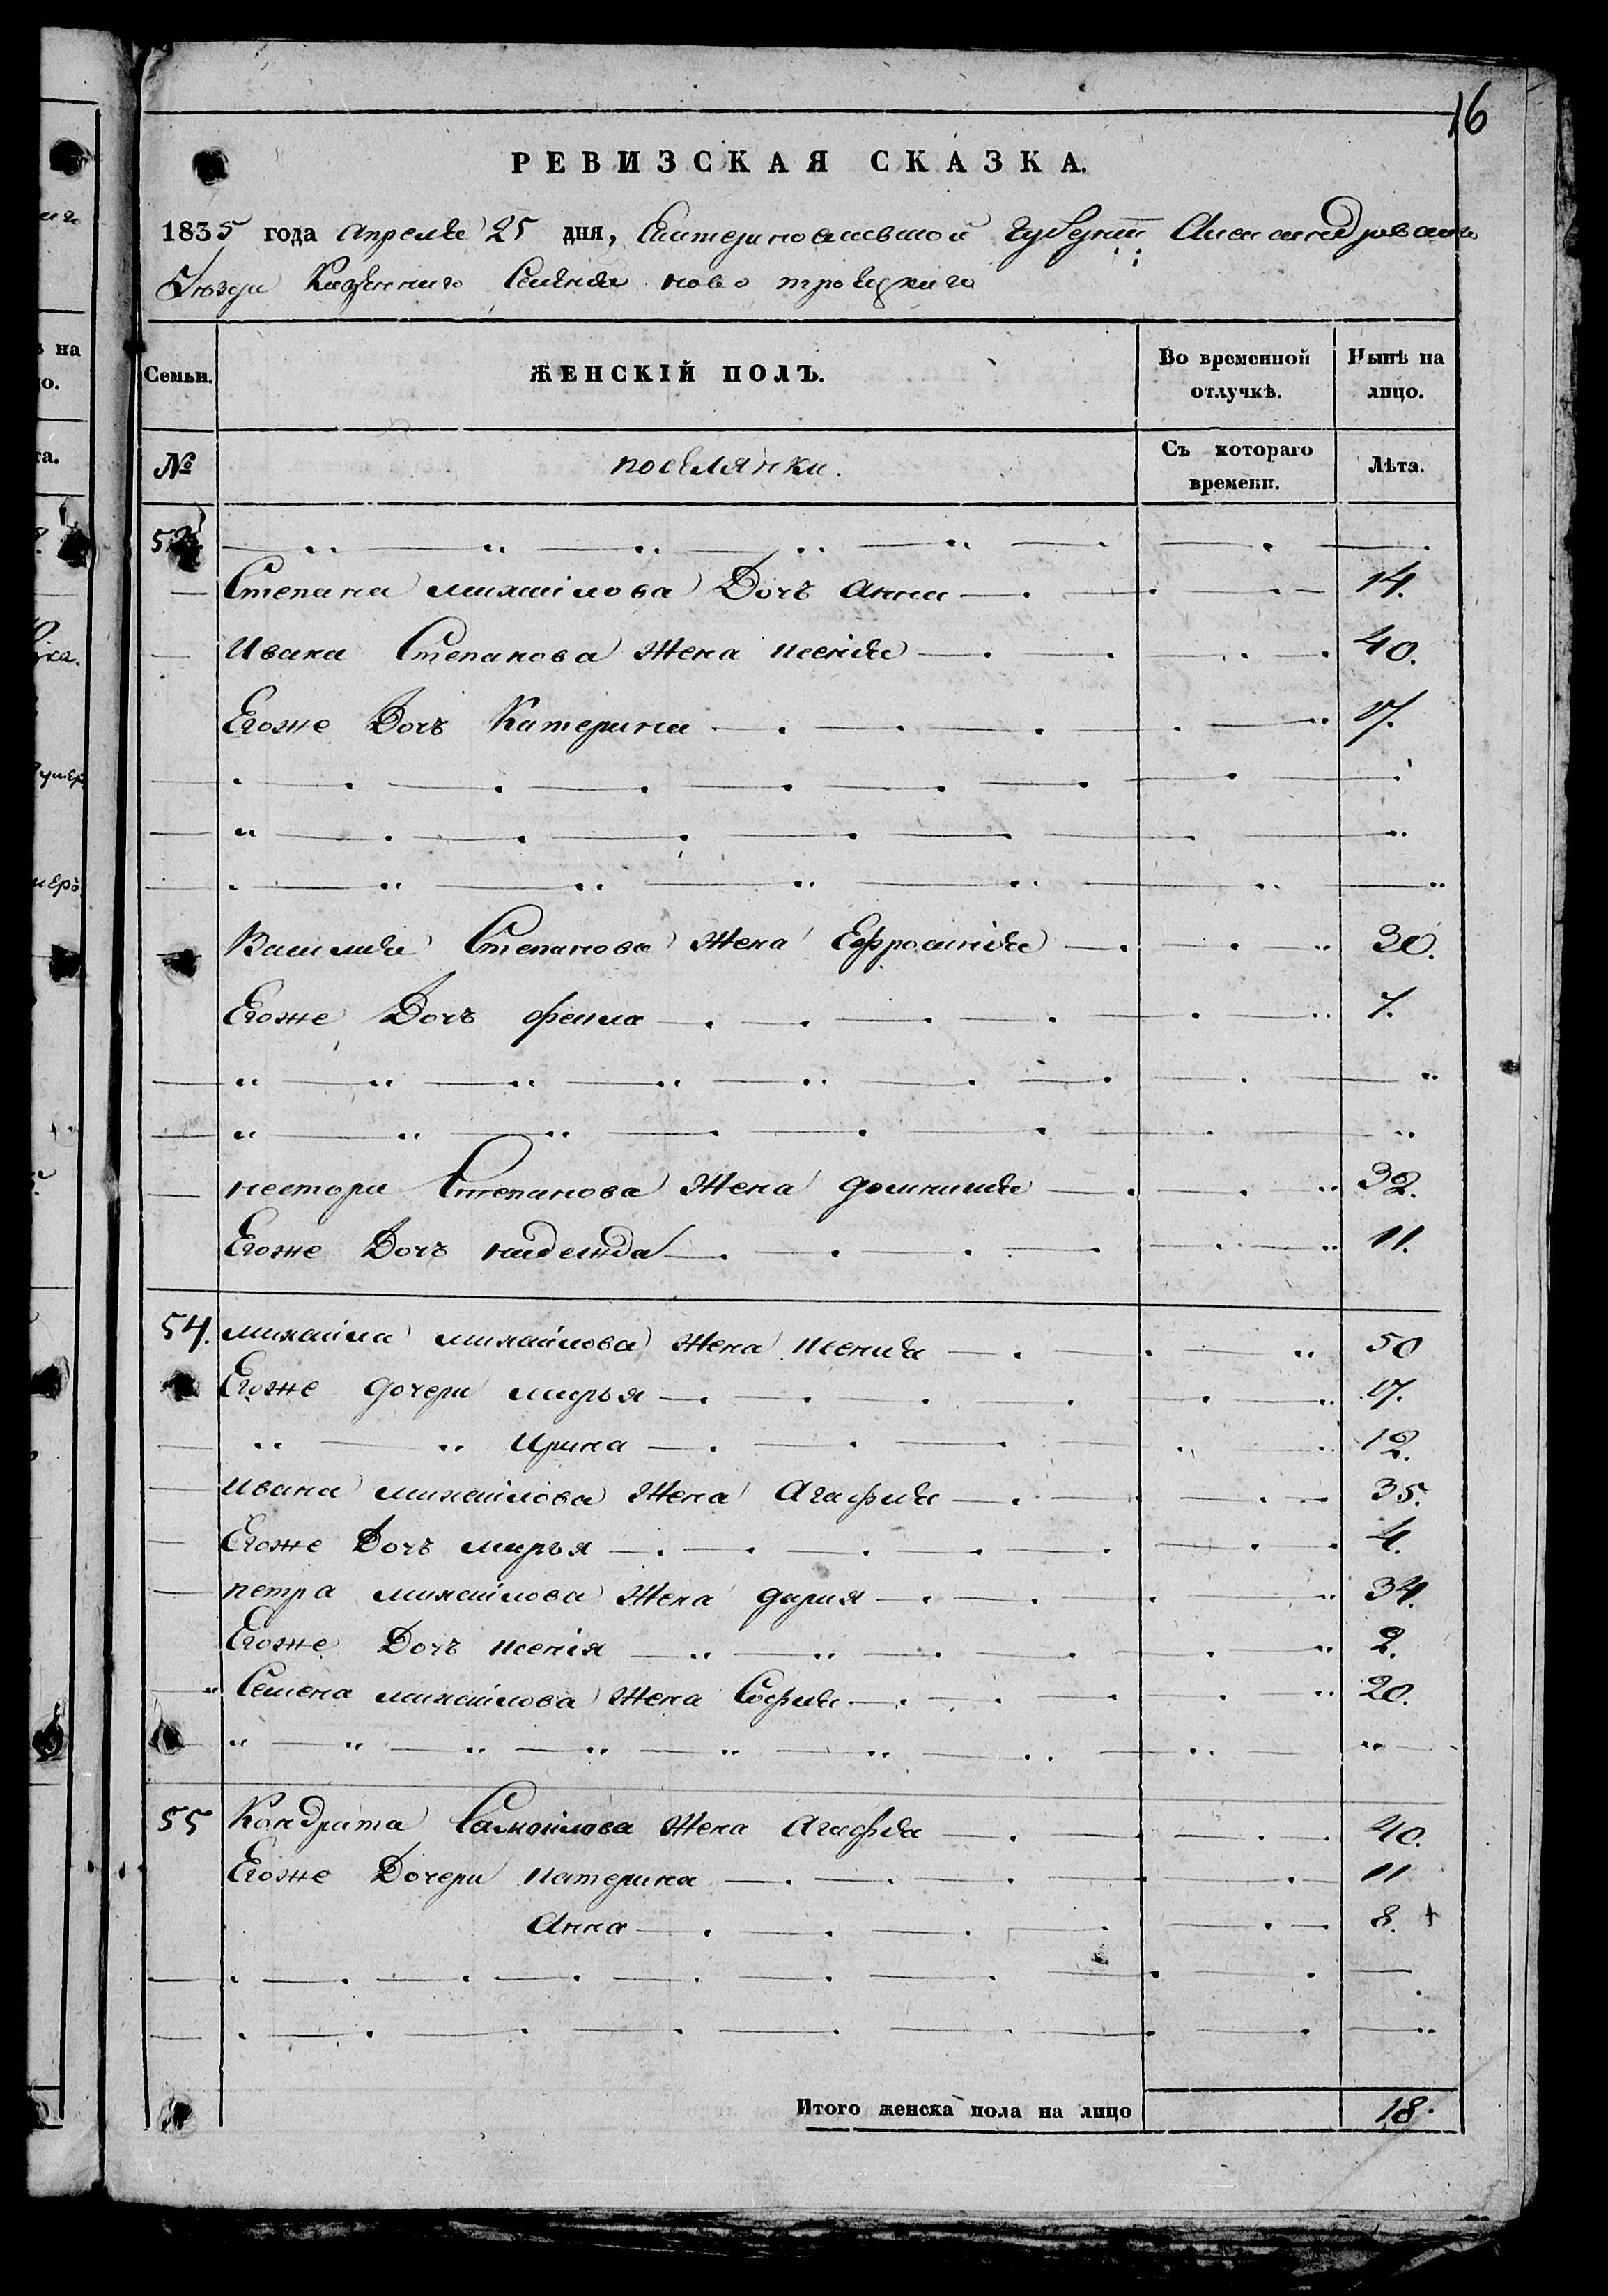 16
РЕВИЗСКАЯ СКАЗКА.
1835 года апреля 25 дня, Екатеринославской губернии Александровского
Уезда Казенного Селения ново троецкаго
Семьи. ЖЕНСКІЙ ПОЛЪ. Во временной отлучкѣ. Нынѣ на лицо.
№ поселянки. Съ котораго времени. Лѣта.
Степана михаилова Дочь анна 14.
Ивана Степанова жена ксенія 40.
Егоже Дочь Катерина 17.
Василия Степанова жена Ефросинія 30.
Егоже Дочь фекла 7.
нестора Степанова жена домникия 32.
Егоже Дочь надежда 11.
54. михаила михаилова жена ксения 50
Егоже дочери марья 17.
Ирина 12.
ивана михаилова жена Агафия 35.
Егоже Дочь марья 4.
петра михаилова жена дария 34.
Егоже Дочь ксенія 2.
Семена михаилова жена София 20.
55 Кондрата Самоилова жена Агафия 40.
Егоже Дочери катерина 11
Анна 8. +
Итого женска пола на лицо 18.